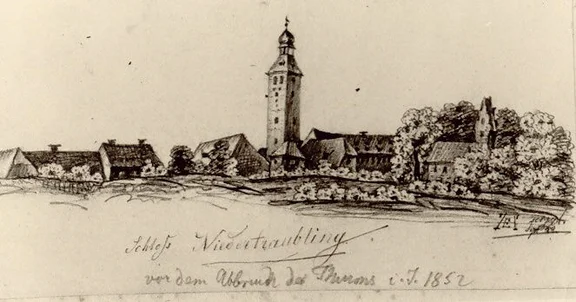 Schloss Niedertraubling
vor dem Abbruch des Thurms i. J. 1852